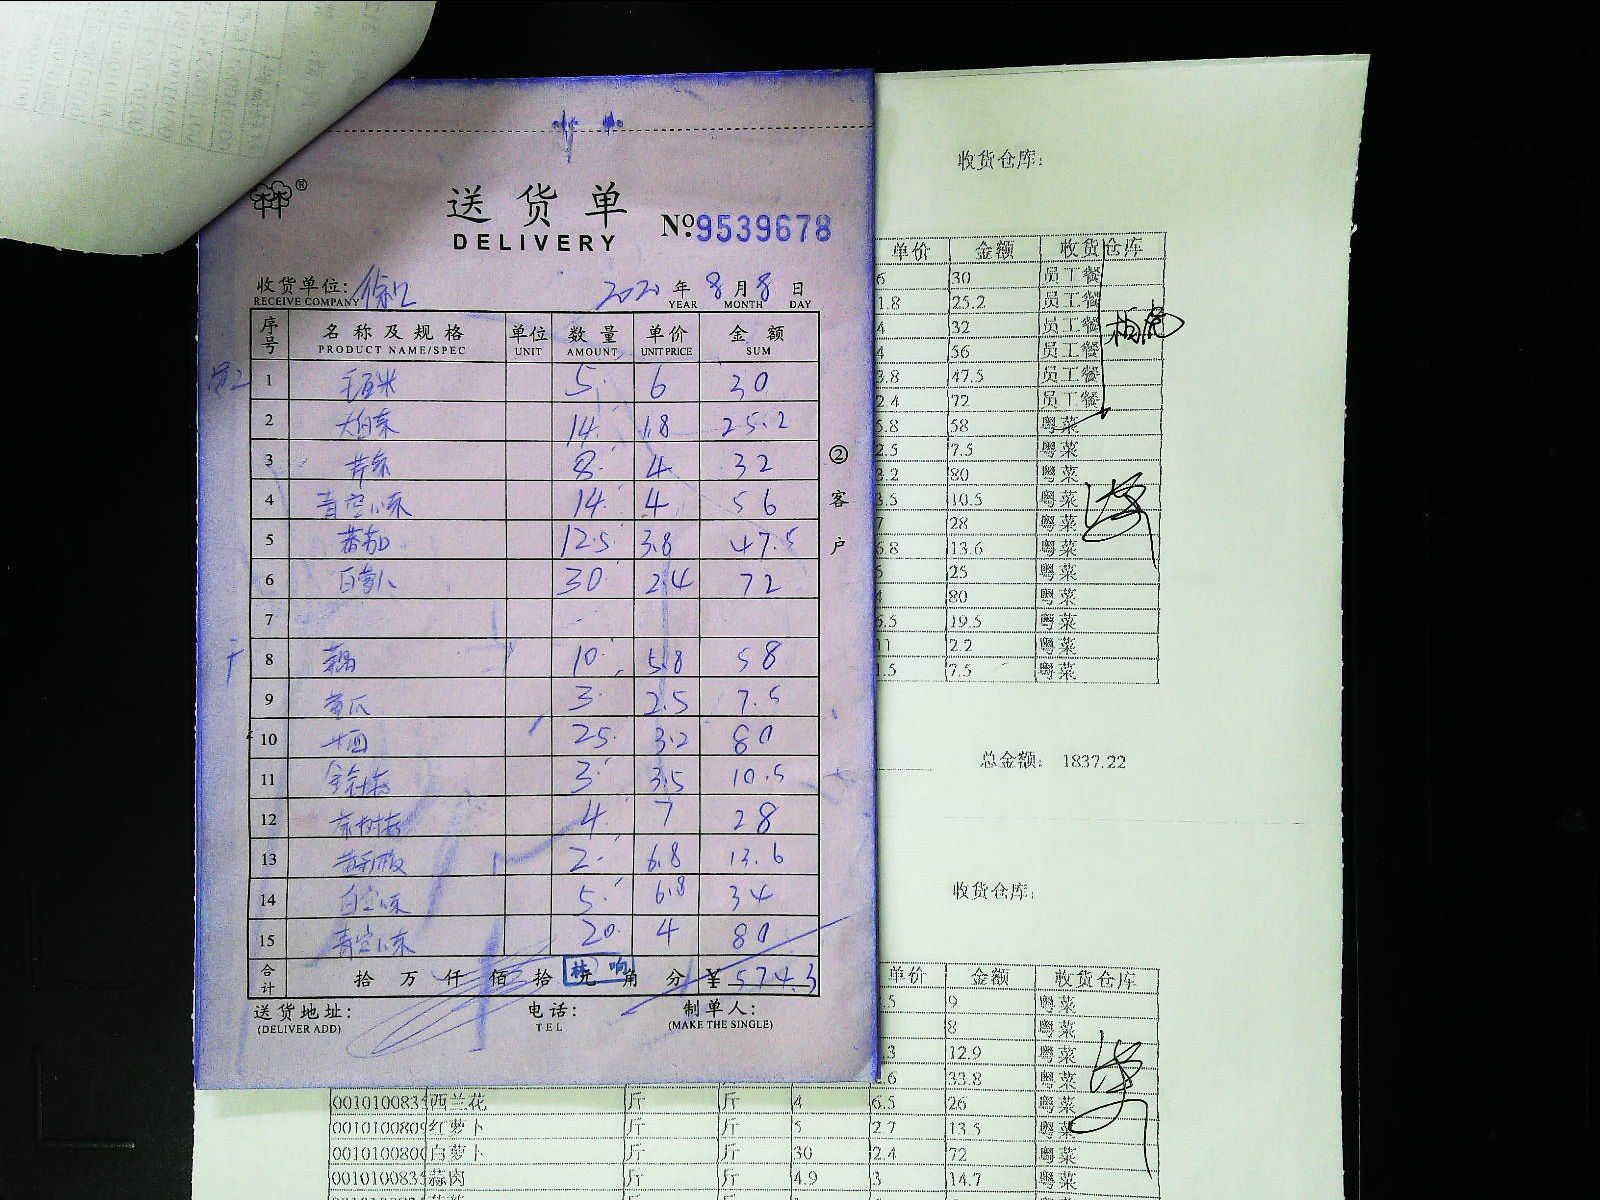 送货单
DELIVERY
№9539678
收货单位: 徐汇 2020 年 8 月 8 日
RECEIVE COMPANY YEAR MONTH DAY
序号 名称及规格 单位 数量 单价 金额
PRODUCT NAME/SPEC UNIT AMOUNT UNIT PRICE SUM
员工 1 毛玉米 5 6 30
2 大白菜 14 1.8 25.2
3 芹菜 8 4 32
4 青空心菜 14 4 56
5 蕃茄 12.5 3.8 47.5
6 白萝卜 30 2.4 72
7
8 藕 10 5.8 58
9 黄瓜 3 2.5 7.5
10 25 3.2 80
11 金针菇 3 3.5 10.5
12 茶树菇 4 7 28
13 2 6.8 13.6
14 白空心菜 5 6.8 34
15 青空心菜 20 4 80
合计 拾 万 仟 佰 拾 元 角 分 ¥ 574.3
林 响
送货地址: 电话: 制单人:
(DELIVER ADD) TEL (MAKE THE SINGLE)
②客户
收货仓库:
单价 金额 收货仓库
6 30 员工餐
1.8 25.2 员工餐
4 32 员工餐
4 56 员工餐
3.8 47.5 员工餐
2.4 72 员工餐
5.8 58 粤菜
2.5 7.5 粤菜
3.2 80 粤菜
3.5 10.5 粤菜
7 28 粤菜
6.8 13.6 粤菜
5 25 粤菜
4 80 粤菜
6.5 19.5 粤菜
11 2.2 粤菜
1.5 7.5 粤菜
总金额: 1837.22
收货仓库:
单价 金额 收货仓库
.5 9 粤菜
8 粤菜
.3 12.9 粤菜
.6 33.8 粤菜
001010083 西兰花 斤 斤 4 6.5 26 粤菜
001010080 红萝卜 斤 斤 5 2.7 13.5 粤菜
001010080 白萝卜 斤 斤 30 2.4 72 粤菜
001010083 蒜肉 斤 斤 4.9 3 14.7 粤菜